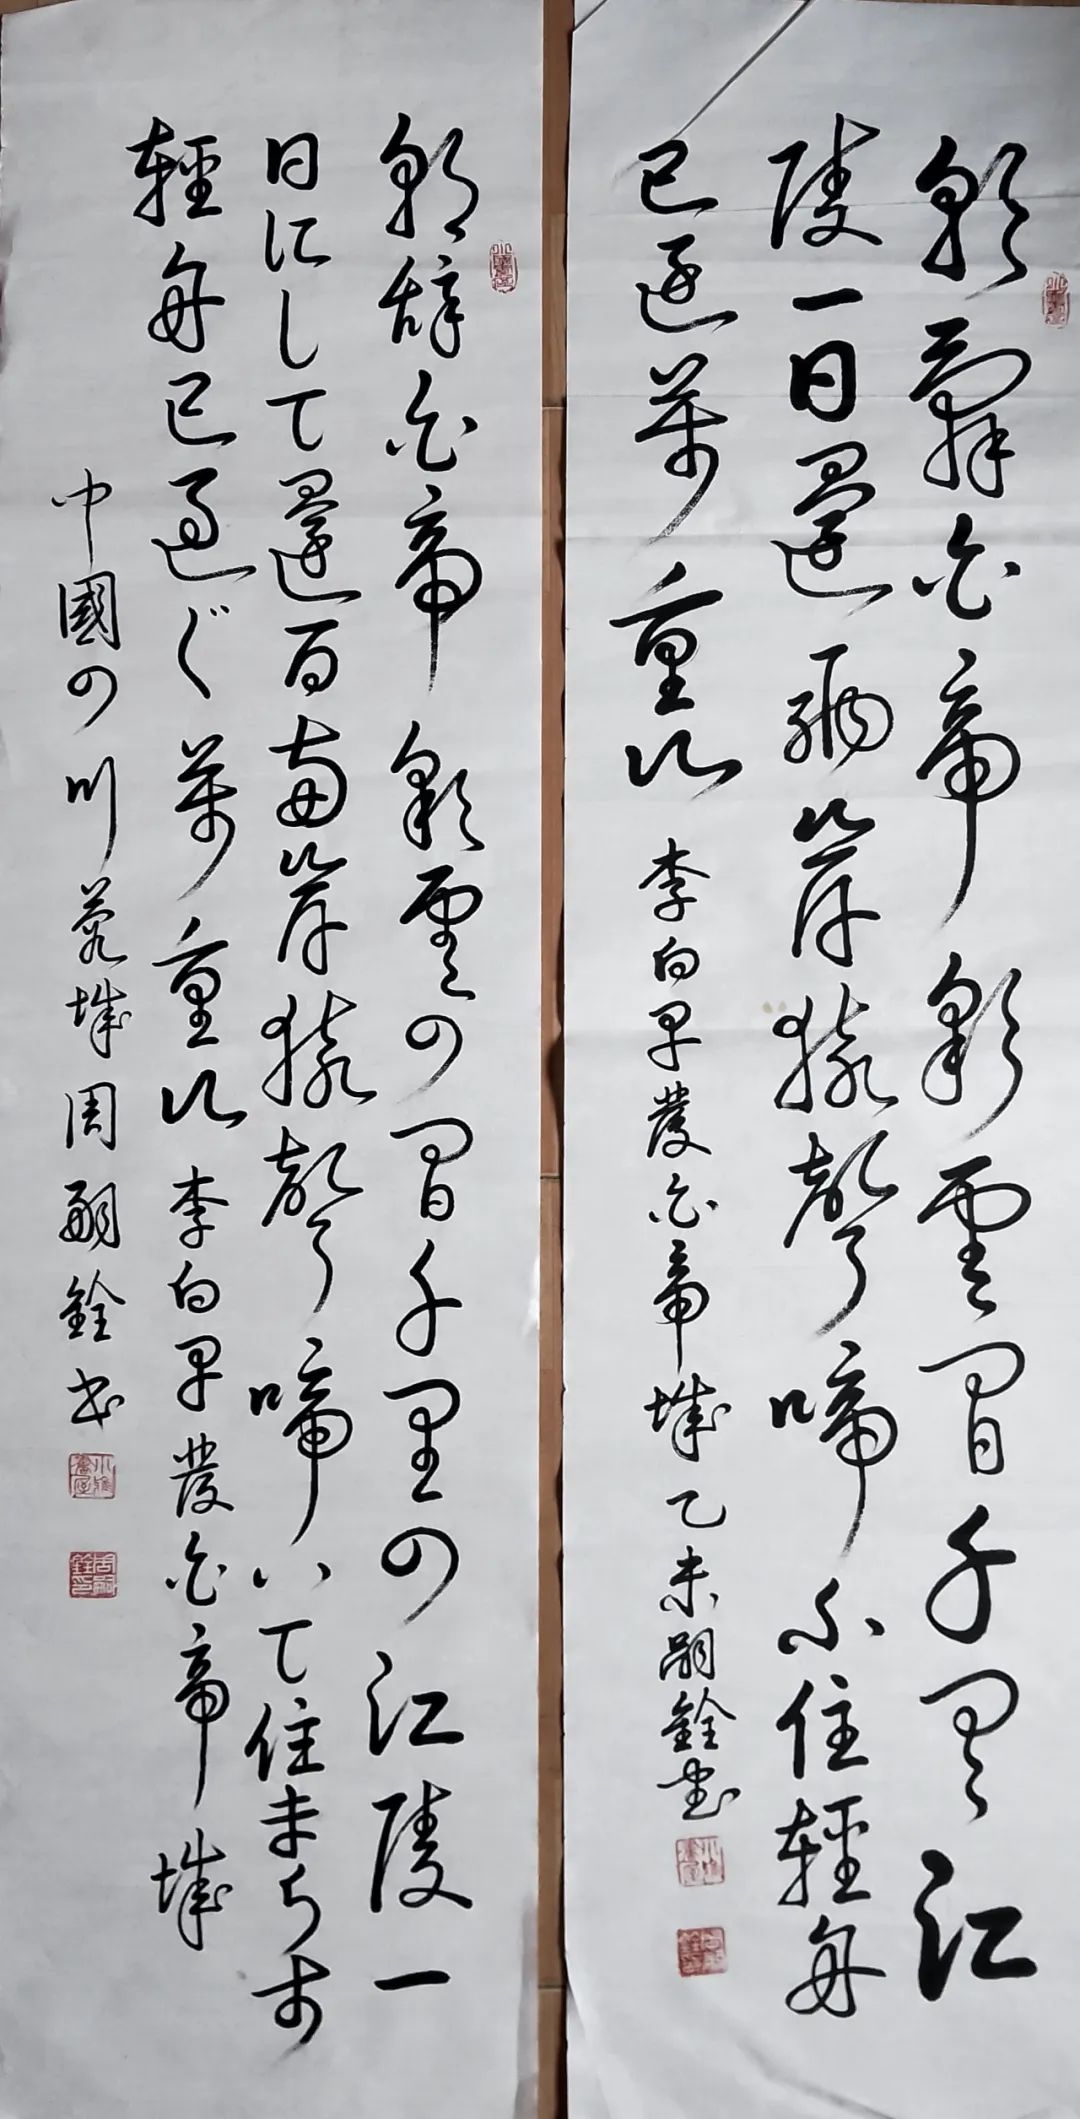 朝辭白帝彩雲間千里江
陵一日還兩岸猿聲啼不住輕舟
已過萬重山 李白早發白帝城 乙未嗣銓書
朝辞白帝彩雲の間千里の江陵一
日にして還百両岸猿聲啼いて住まらす
輕舟已過ぐ萬重山 李白早發白帝城
中國四川蓉城周嗣銓书
周嗣銓印